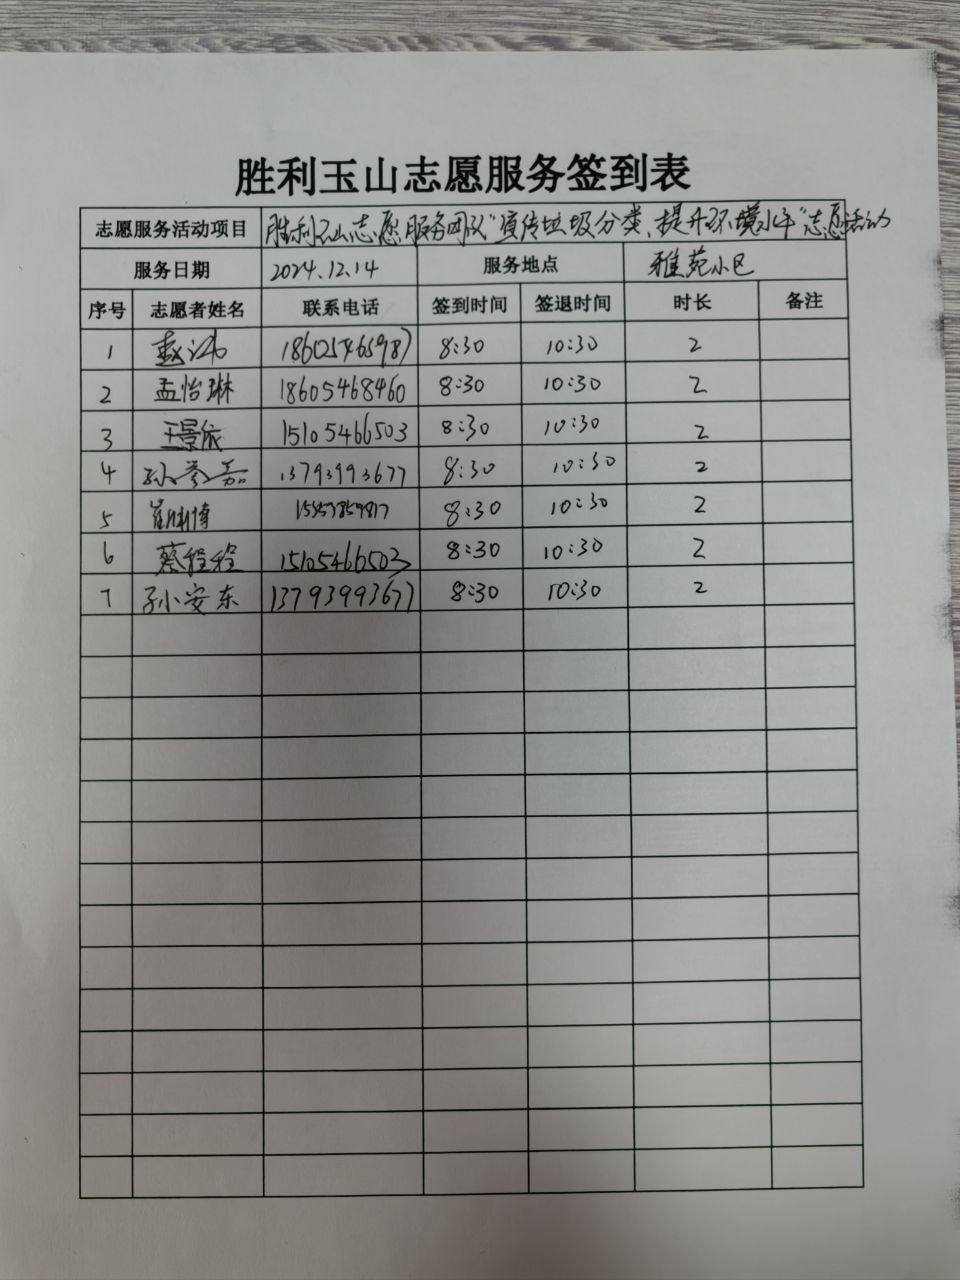 胜利玉山志愿服务签到表
志愿服务活动项目 胜利玉山志愿服务团队"宣传垃圾分类、提升环境水平"志愿活动
服务日期 2024.12.14 服务地点 雅苑小区
序号 志愿者姓名 联系电话 签到时间 签退时间 时长 备注
1 赵伟 18602546598 8:30 10:30 2
2 孟怡琳 18605468460 8:30 10:30 2
3 王景依 15105466503 8:30 10:30 2
4 孙彦嘉 13793993677 8:30 10:30 2
5 8:30 10:30 2
6 蔡程程 15105466503 8:30 10:30 2
7 孙安东 13793993677 8:30 10:30 2